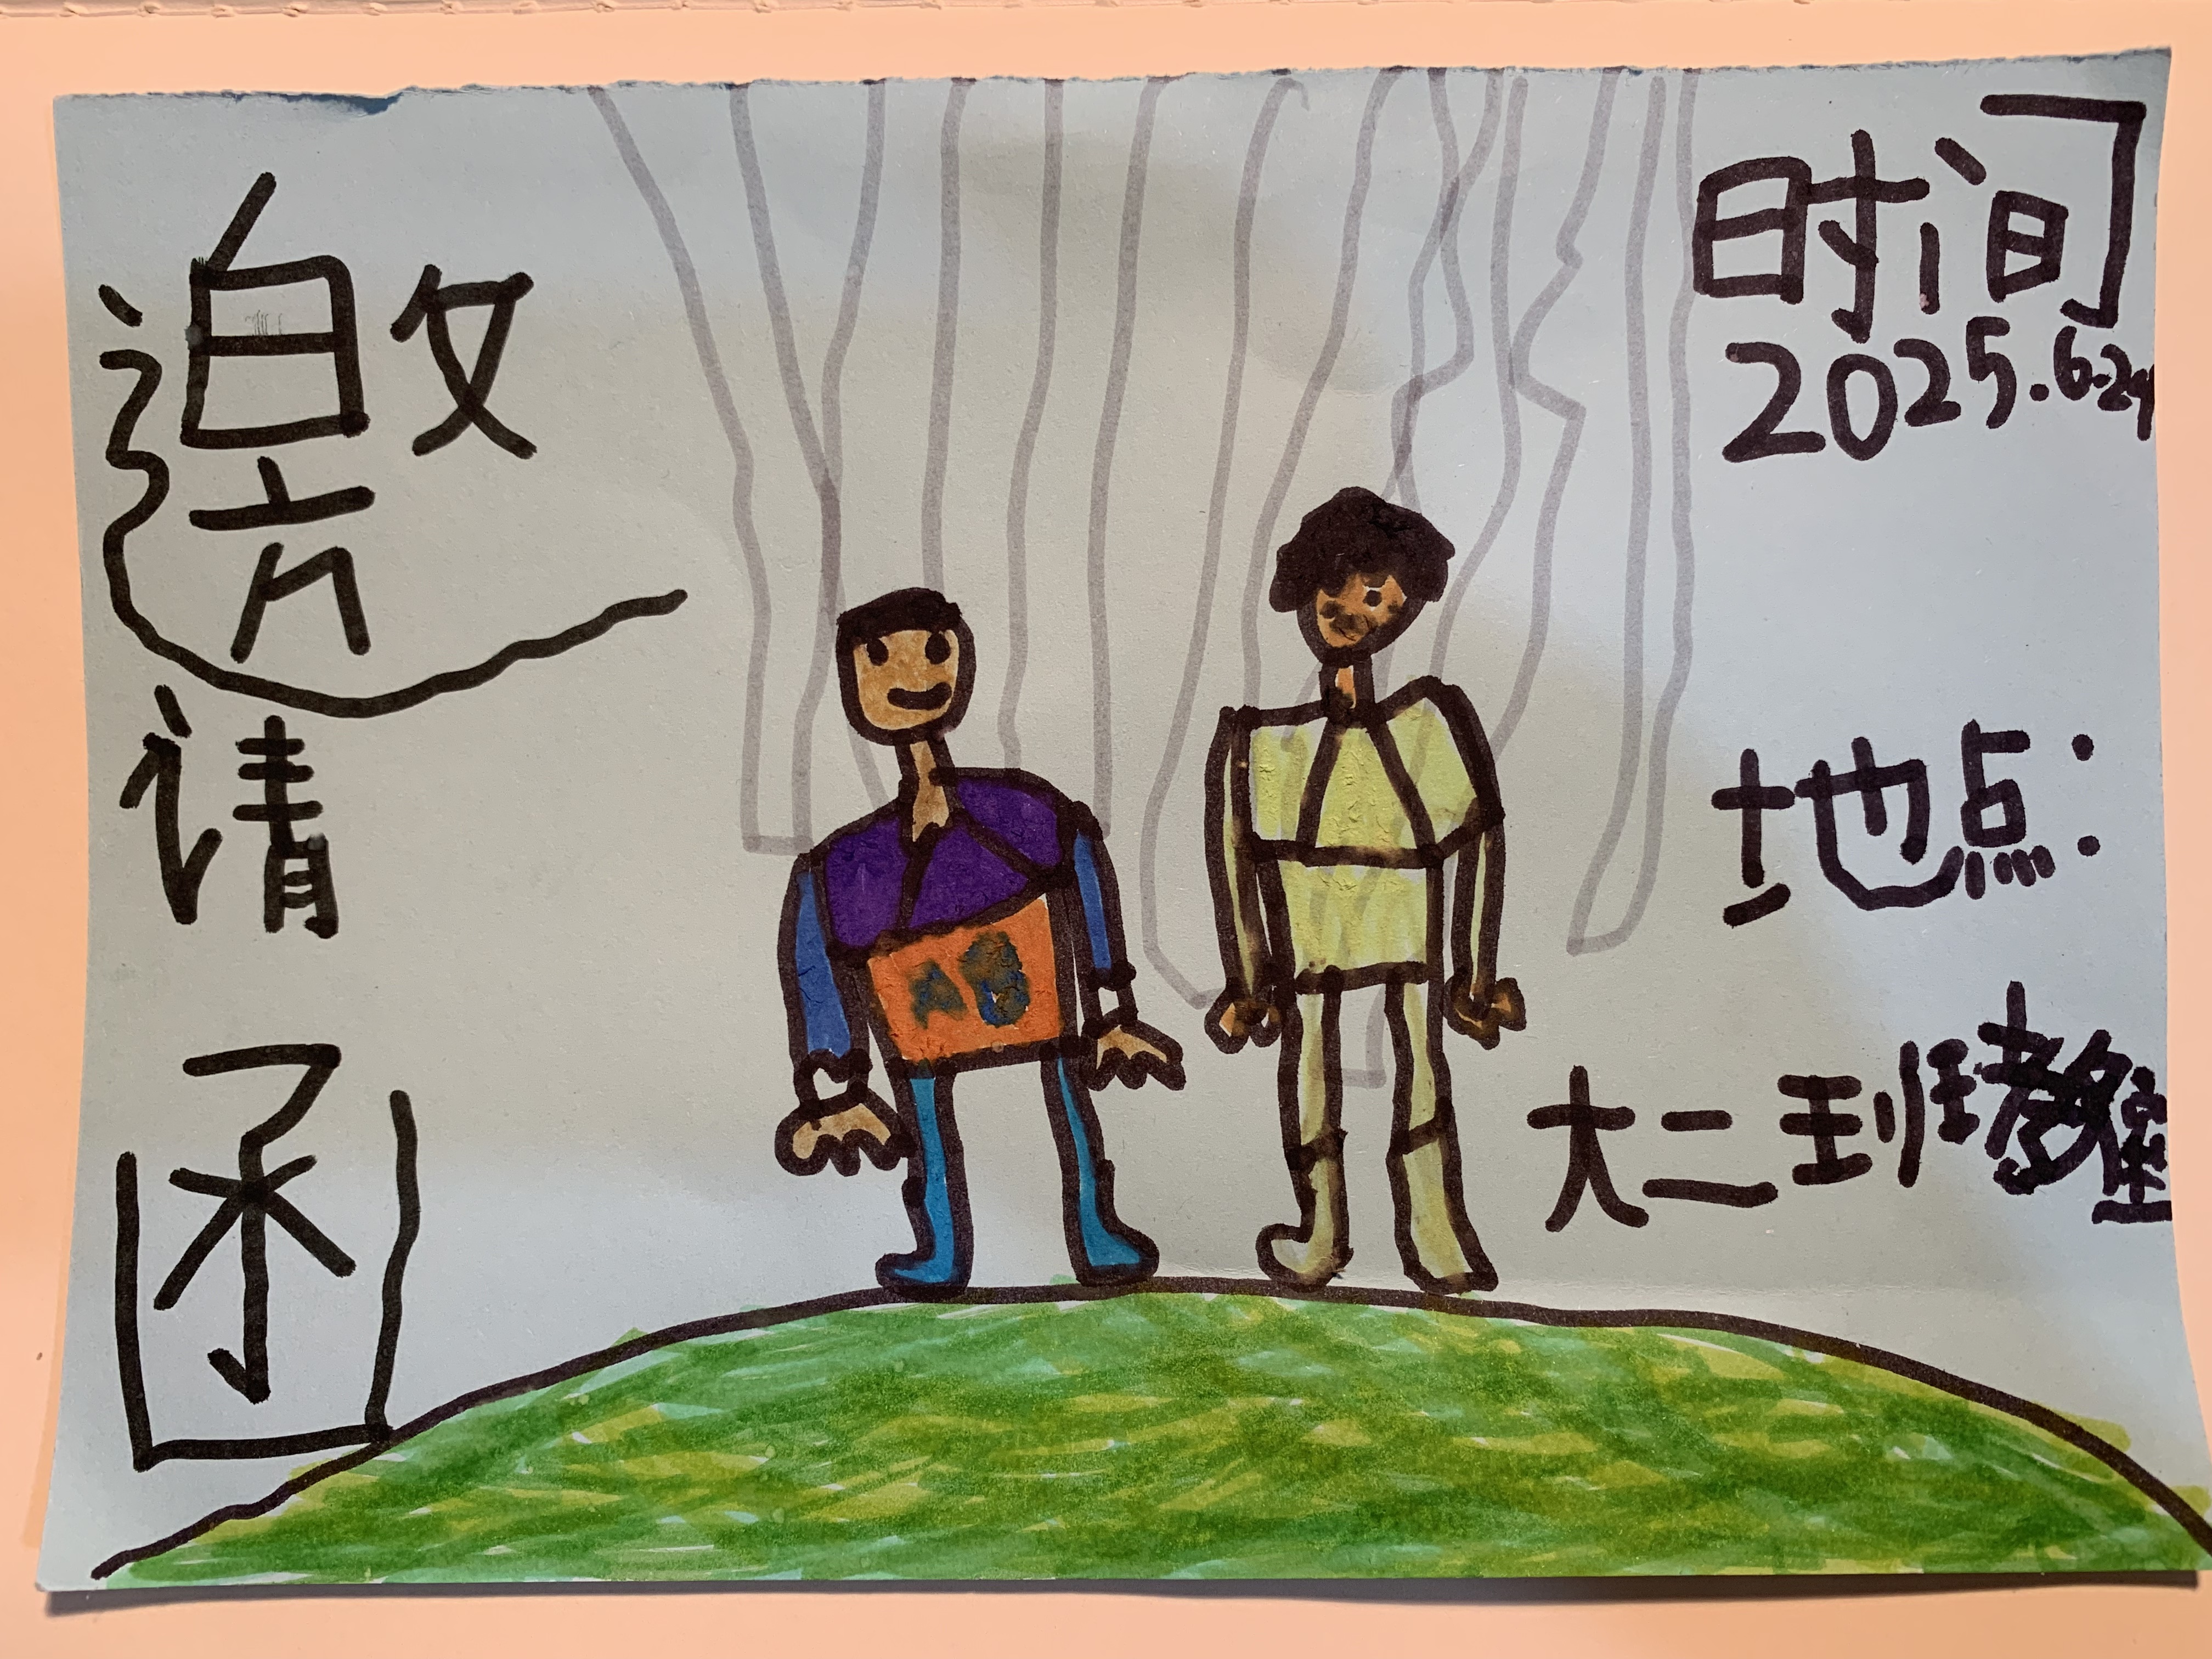 邀请函
时间
2025.6.24
地点:
大二班教室
AB